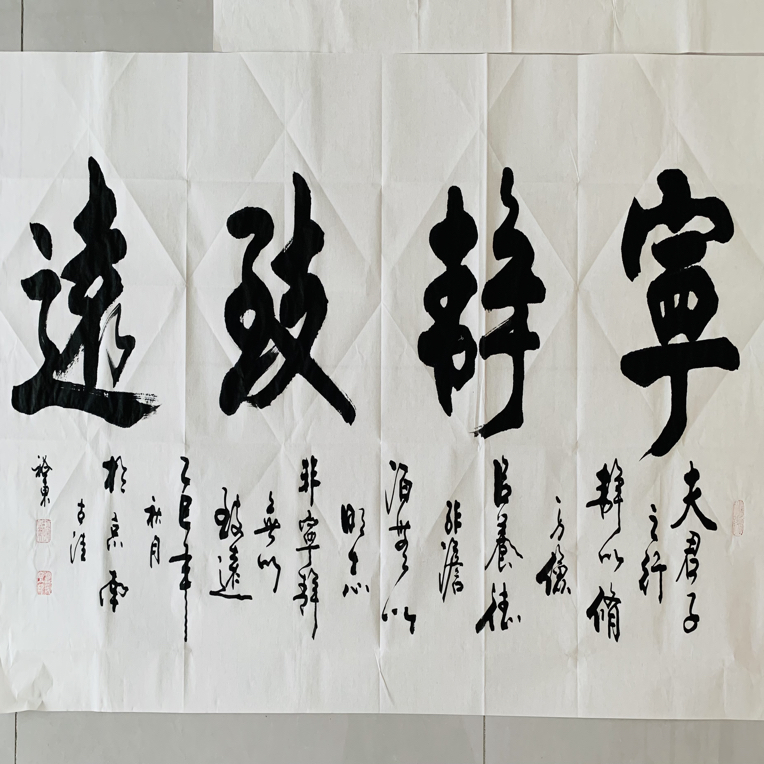 寧靜致遠
夫君子
之行
靜以脩
身儉
以養德
非澹
泊無以
明志
非寧靜
無以
致遠
乙巳年
秋月
於京